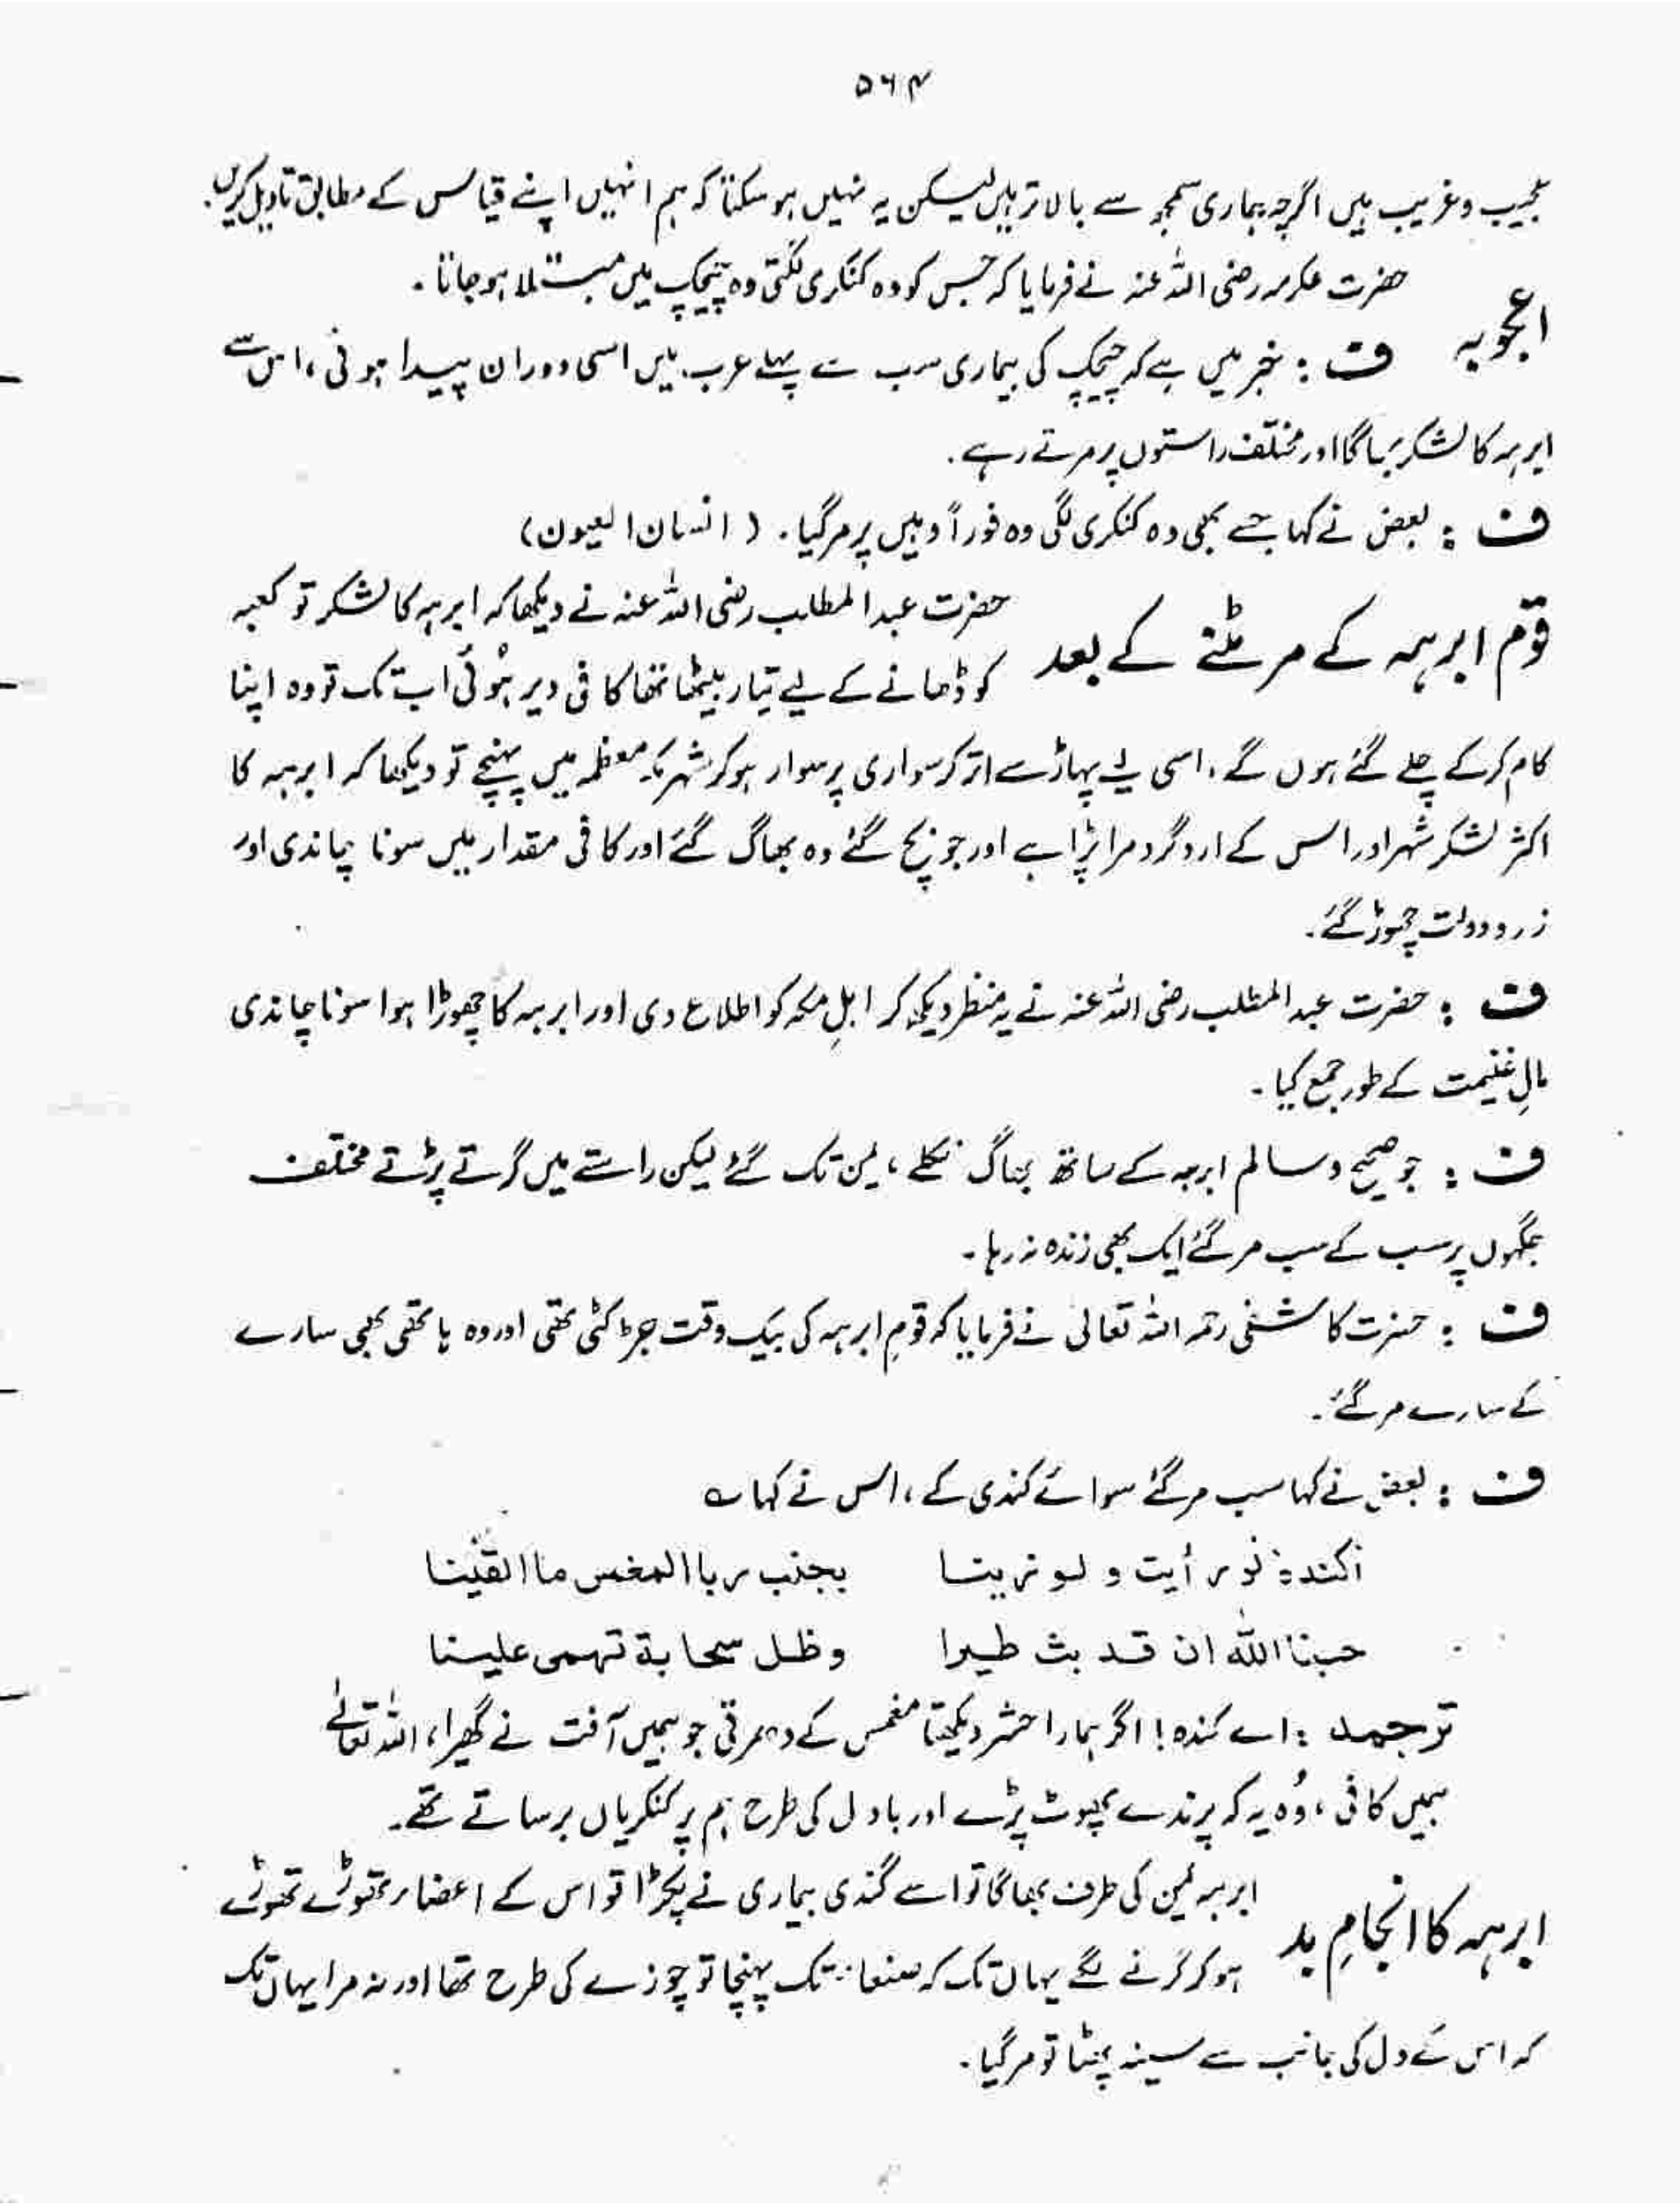 ۵۶۴
عجیب و غریب ہیں اگرچہ ہماری سمجھ سے بالاتر ہیں لیکن یہ نہیں ہو سکتا کہ ہم انہیں اپنے قیاس کے مطابق تاویل کریں.
حضرت عکرمہ رضی اللہ عنہ نے فرمایا کہ جس کو وہ کنکری لگتی وہ چیچک میں مبتلا ہو جاتا.
اعجوبہ
ف : خبر میں ہے کہ چیچک کی بیماری سب سے پہلے عرب میں اسی دوران پیدا ہوئی، اس سے
ابرہہ کا لشکر بھاگا اور مختلف راستوں پر مرتے رہے.
ف : بعض نے کہا جسے بھی وہ کنکری لگی وہ فوراً وہیں پر مر گیا. (انسان العیون)
قوم ابرہہ کے مر مٹنے کے بعد
حضرت عبدالمطلب رضی اللہ عنہ نے دیکھا کہ ابرہہ کا لشکر تو کعبہ
کو ڈھانے کے لیے تیار بیٹھا تھا کافی دیر ہوئی اب تک تو وہ اپنا
کام کر کے چلے گئے ہوں گے، اسی لیے پہاڑ سے اتر کر سواری پر سوار ہو کر شہر مکہ معظمہ میں پہنچے تو دیکھا کہ ابرہہ کا
اکثر لشکر شہر اور اس کے اردگرد مرا پڑا ہے اور جو بچ گئے وہ بھاگ گئے اور کافی مقدار میں سونا چاندی اور
زر و دولت چھوڑ گئے.
ف : حضرت عبدالمطلب رضی اللہ عنہ نے یہ منظر دیکھ کر اہلِ مکہ کو اطلاع دی اور ابرہہ کا چھوڑا ہوا سونا چاندی
مالِ غنیمت کے طور جمع کیا.
ف : جو صحیح و سالم ابرہہ کے ساتھ بھاگ نکلے، یمن تک گئے لیکن راستے میں گرتے پڑتے مختلف
جگہوں پر سب کے سب مر گئے ایک بھی زندہ نہ رہا.
ف : حضرت کاشفی رحمہ اللہ تعالی نے فرمایا کہ قومِ ابرہہ کی بیک وقت جڑ کٹی تھی اور وہ ہاتھی بھی سارے
کے سارے مر گئے.
ف : بعض نے کہا سب مر گئے سوائے کندی کے، اس نے کہا ؎
اکندۃ لو رأیت و لو ترینا بجنب ربا المغمس ما القینا
حسبنا اللہ ان قد بث طیرا وظل سحابة تهمى علينا
ترجمہ : اے کندہ! اگر ہمارا حشر دیکھتا مغمس کے جو ہمیں آفت نے گھیرا، اللہ تعالےٰ
ہمیں کافی، وُہ یہ کہ پرندے پھوٹ پڑے اور بادل کی طرح ہم پر کنکریاں برساتے تھے.
ابرہہ کا انجامِ بد
ابرہہ یمن کی طرف بھاگا تو اسے گندی بیماری نے پکڑا تو اس کے اعضاء تھوڑے تھوڑے
ہو کر گرنے لگے یہاں تک کہ صنعاء تک پہنچا تو چوزے کی طرح تھا اور نہ مرا یہاں تک
کہ اس کے دل کی جانب سے سینہ پھٹا تو مر گیا.